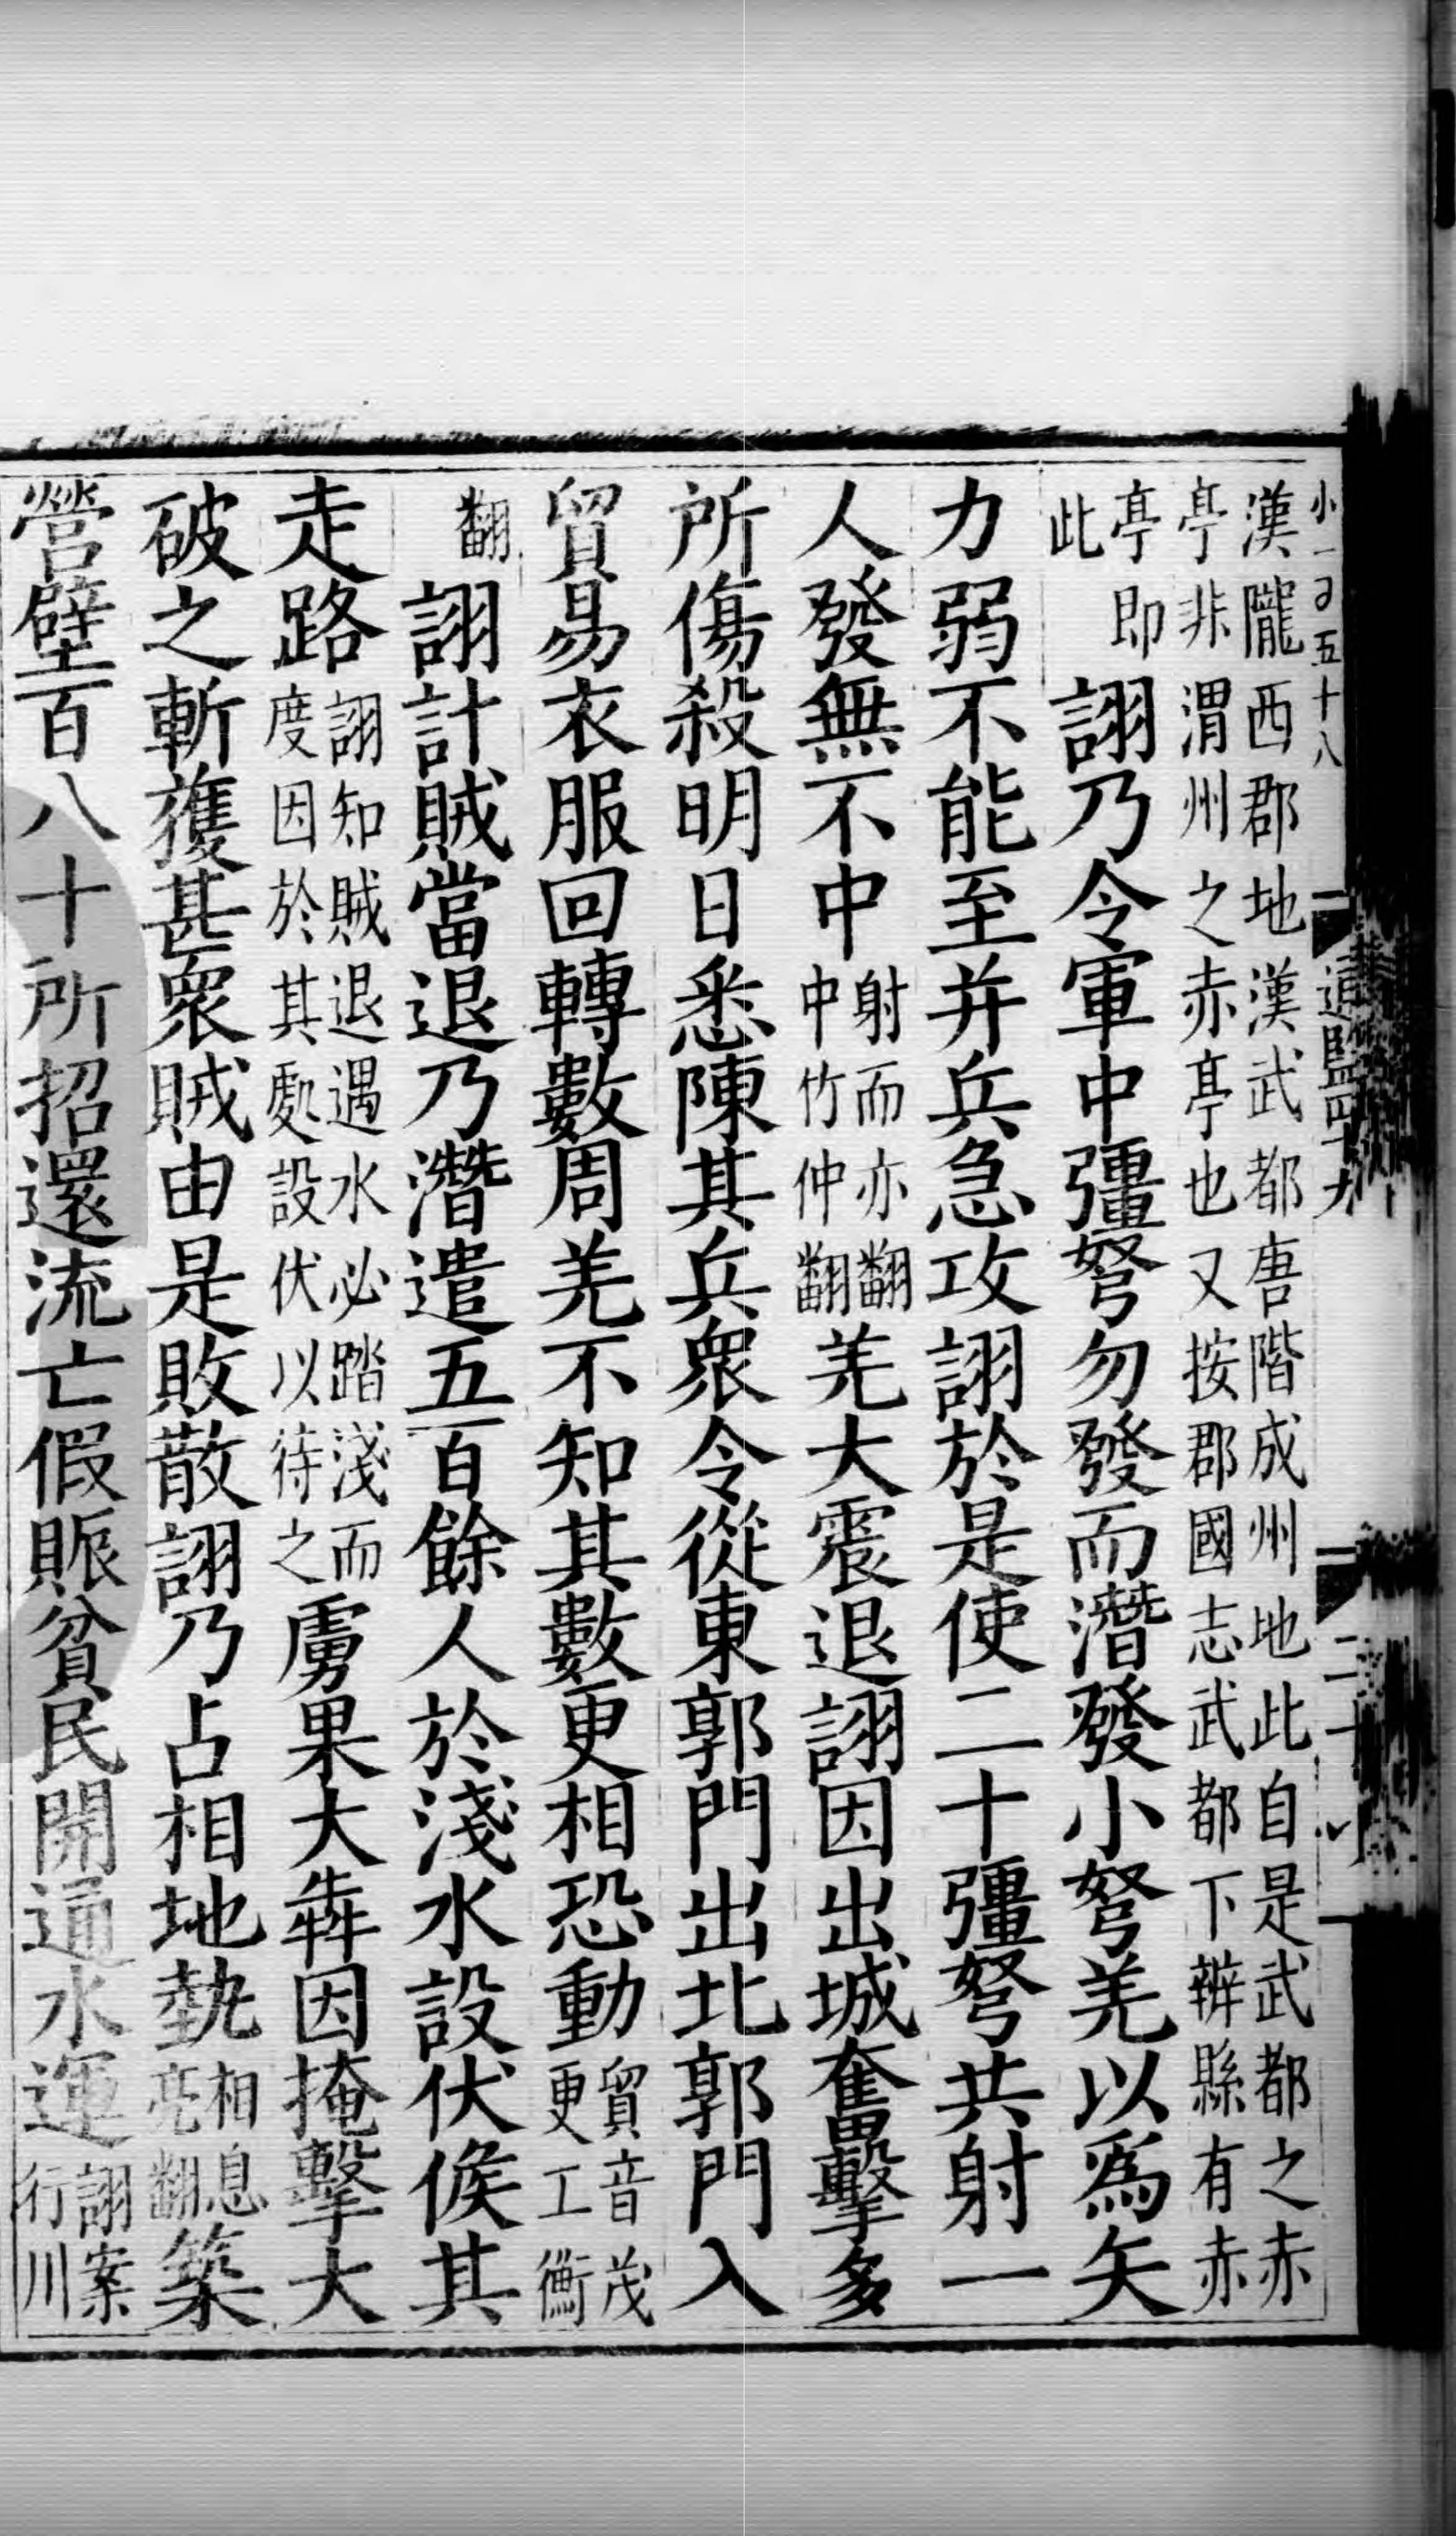 漢隴西郡地漢武都唐階成州地此自是武都之赤
亭非渭州之赤亭也又按郡國志武都下辨縣有赤
亭即此詡乃令軍中彊弩勿發而潛發小弩羌以爲矢
力弱不能至并兵急攻詡於是使二十彊弩共射一
人發無不中射而亦翻中竹仲翻羌大震退詡因出城奮擊多
所傷殺明日悉陳其兵衆令從東郭門出北郭門入
貿易衣服回轉數周羌不知其數更相恐動貿音茂更工衡
翻詡計賊當退乃潛遣五百餘人於淺水設伏候其
走路詡知賊退遇水必踏淺而度因於其處設伏以待之虜果大犇因掩擊大
破之斬獲甚衆賊由是敗散詡乃占相地埶相息亮翻築
營壁百八十所招還流亡假賑貧民開通水運詡案行川